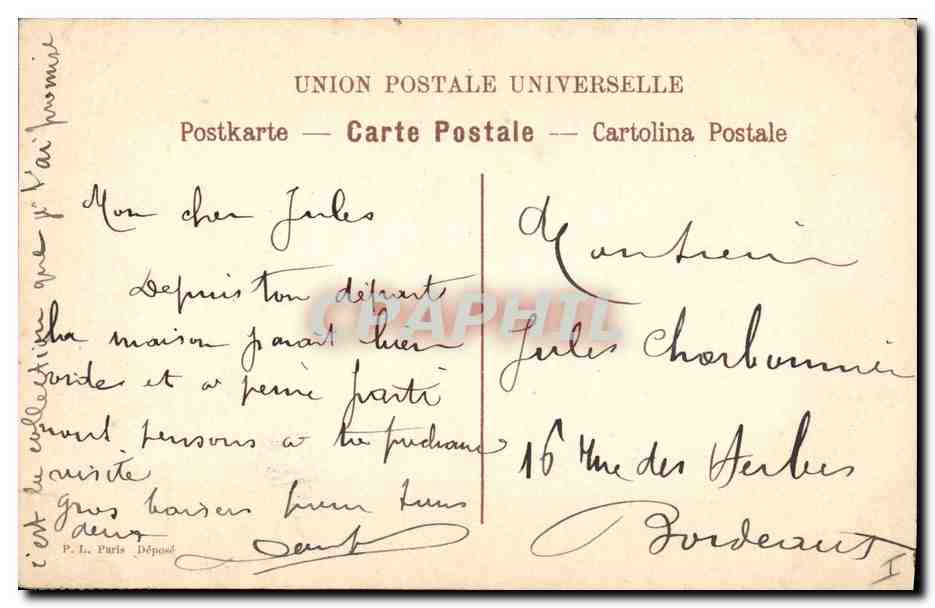 UNION POSTALE UNIVERSELLE
Postkarte — Carte Postale — Cartolina Postale
Mon cher Jules
Depuis ton départ
la maison parait bien
vide et a peine parti
nous pensons a ta prochaine
visite
gros baisers pour tous
deux
P. L. Paris Déposé
c'est la collection que je t'ai promise
Monsieur
Jules Charbonnier
16 Rue des Herbes
Bordeaux
I
CPAPHIL